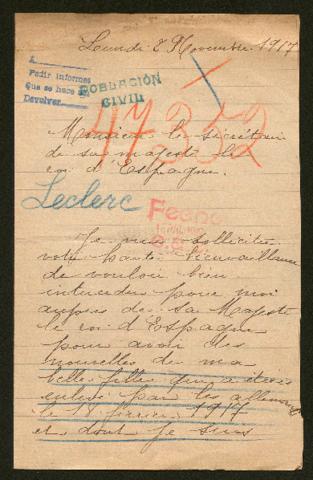 Lundi 8 Novembre 1917
A
Pedir informes
que se hace
Devolver
POBLACIÓN
CIVIL
47352
Monsieur le Sécrétaire
de sa majesté le
roi d'Espagne.
Leclerc
Je sollicite
votre haute bienveillance
de vouloir bien
interceder pour moi
aupres de sa Majesté
le roi d'Espagne
pour avoir des
nouvelles de ma
belle fille qui a étais
enlevé par les allemands
le 18 fevrier 1917
et dont je suis